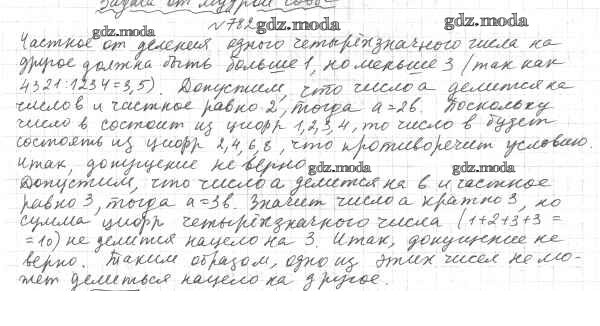 Задача от мудрой совы
№782
gdz.moda gdz.moda gdz.moda
Частное от деления одного четырёхзначного числа на
другое должна быть больше 1, но меньше 3 (так как
4321:1234=3,5). Допустим, что число а делится на
число в и частное равно 2, тогда а=2в. Поскольку
число в состоит из цифр 1,2,3,4, то число в будет
состоять из цифр 2,4,6,8, что противоречит условию.
Итак, допущение не верно.
gdz.moda gdz.moda
Допустим, что число а делится на в и частное
равно 3, тогда а=3в. Значит число а кратно 3, но
сумма цифр четырёхзначного числа (1+2+3+3=
=10) не делится нацело на 3. Итак, допущение не
верно. Таким образом, одно из этих чисел не мо-
жет делиться нацело на другое.